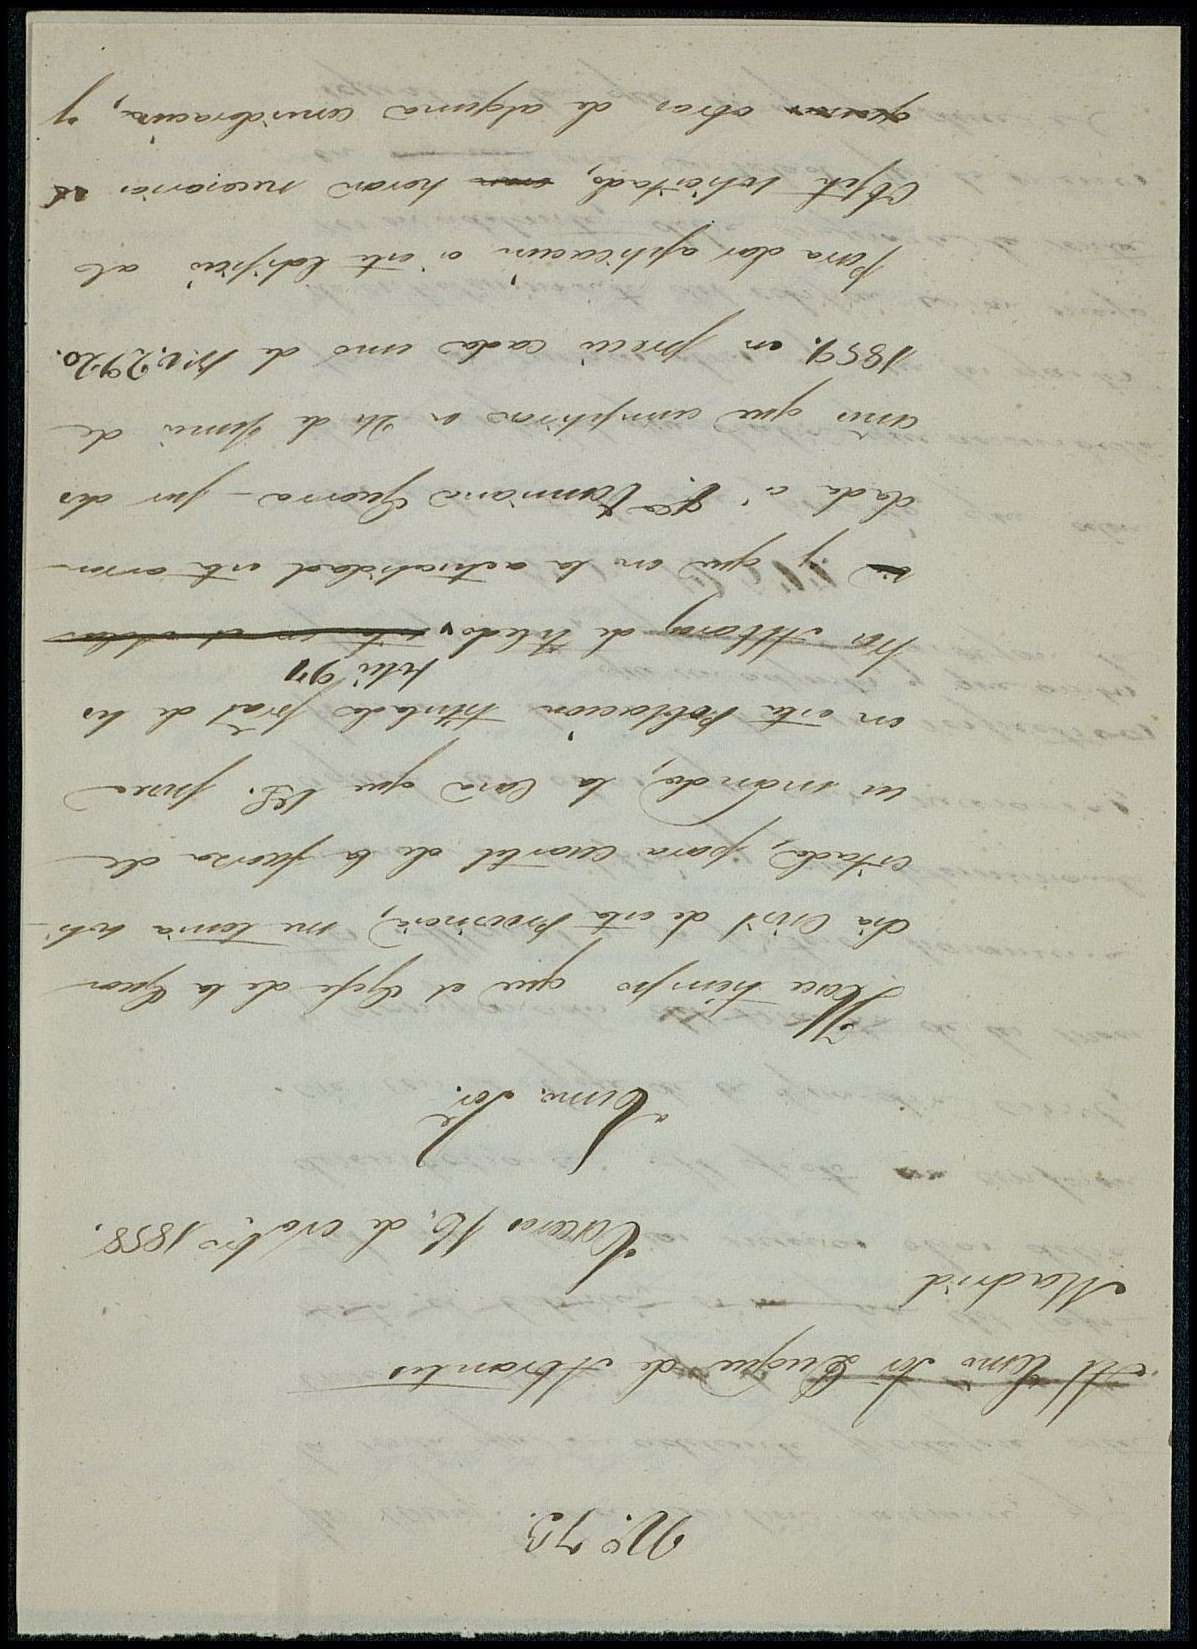 Nº. 73.
Al Exmo Sor Duque de Abrantes
Madrid
Cáceres 16. de octbre. 1858.
Exmo. Sor.
Hace tiempo que el Gefe de la Guar
dia Civil de esta Provincia, me tenia soli-
citado, para cuartel de la fuerza de
su mando, la casa que V.E. posee
en esta Poblacion, titulado pral de los
sitio
tra Altaroz de Toledo, esta en el
y que en la actualidad está arren-
dada á Dº Damiana Guerra - por dos
años que cumpliran en 24 de Junio de
1859. en precio cada uno de Rs.v. 2920.
Para dar aplicacion á este Edificio al
objeto solicitado, heran necesarias
obras de alguna consideracion, y